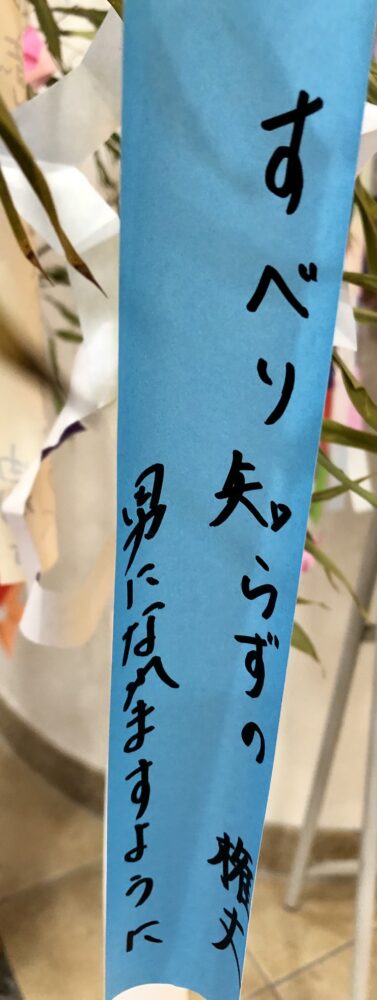 すべり知らずの
男になれますように
権丈